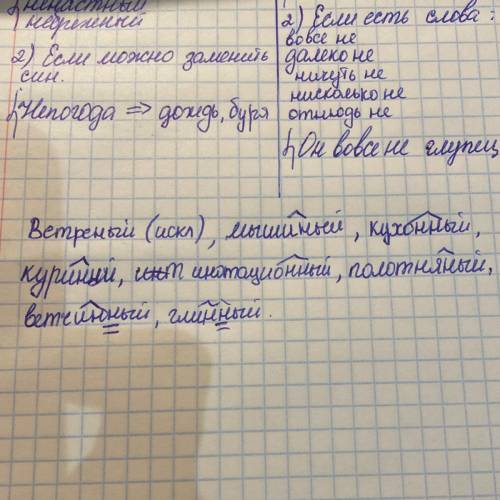 ненастный
небрежный
2) Если можно заменить
син.
Непогода ⇒ дождь, буря
2) Если есть слова:
вовсе не
далеко не
ничуть не
нисколько не
отнюдь не
Он вовсе не глупец
Ветреный (искл), мышиный, кухонный,
куриный, инотационный, полотняный,
ветчинный, глинный.